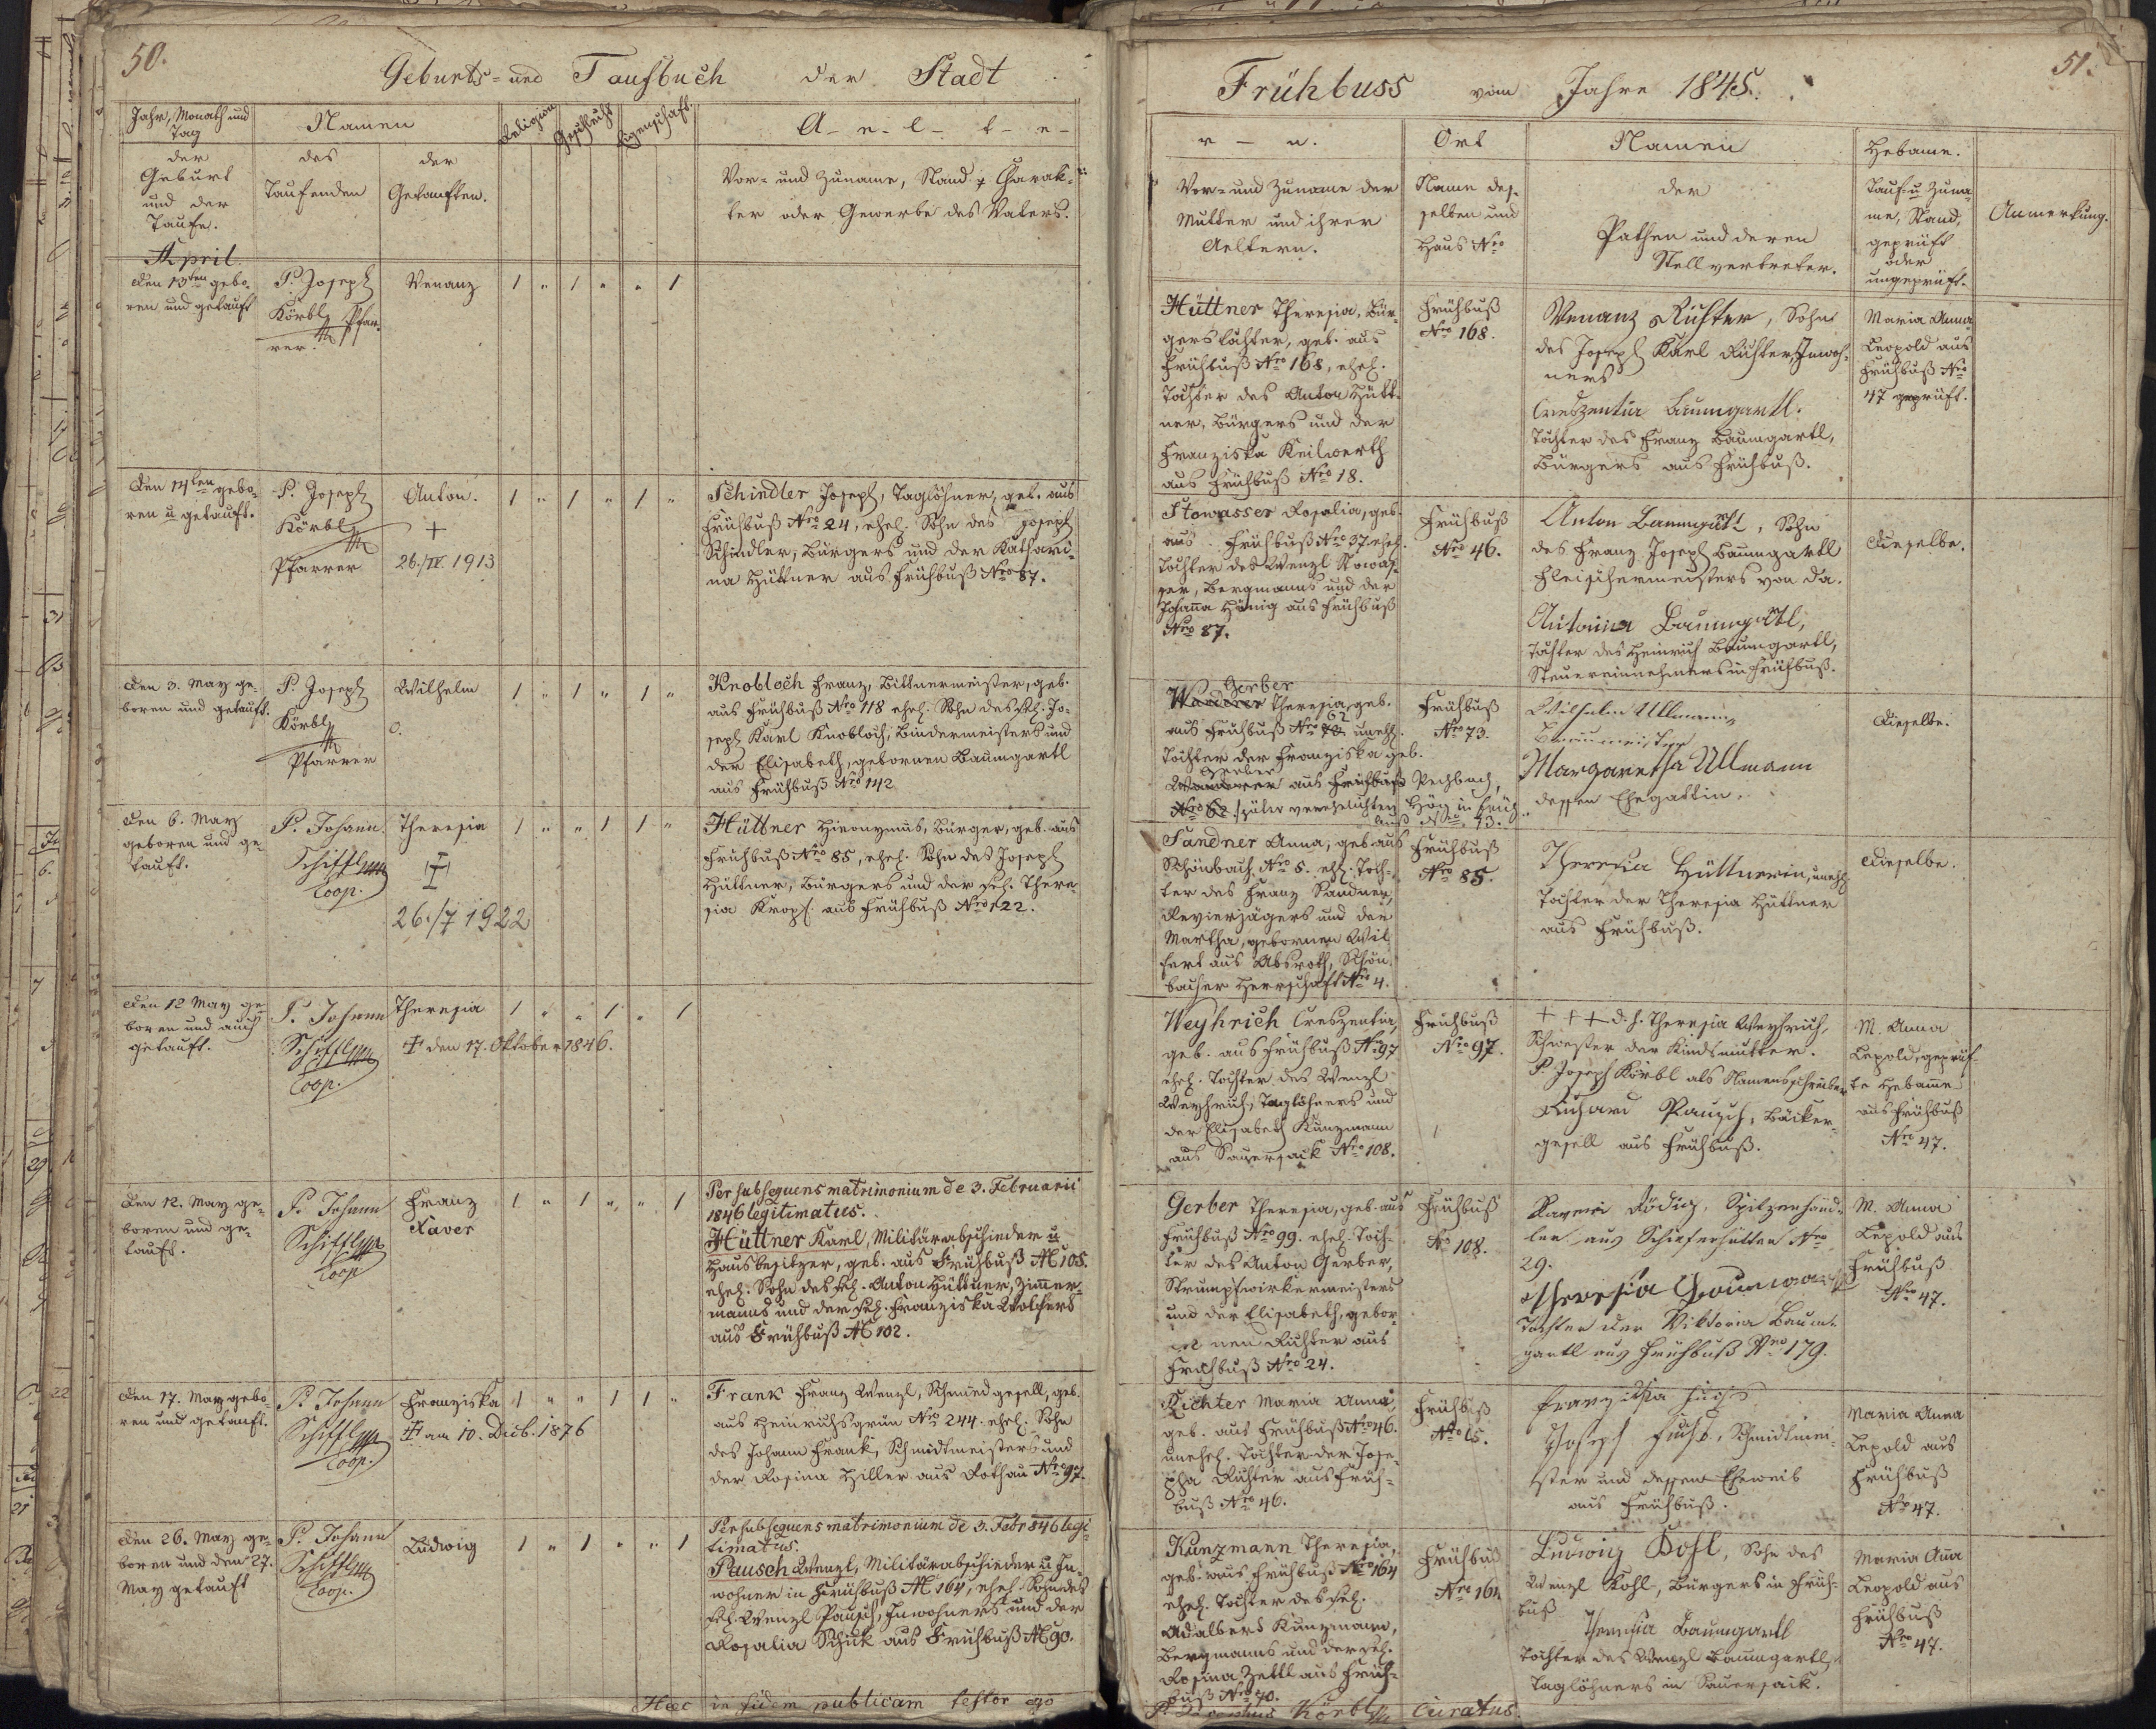 50.
Geburts- und Taufbuch der Stadt
Jahr, Monath und
Tag
der
Geburt
und der
Taufe.
Namen
des
Taufenden
der
Getauften.
Religion
Geschlecht
Eigenschaft.
A- e- l- t- e-
Vor- und Zuname, Stand & Charak-
ter oder Gewerbe des Vaters.
April.
Den 13ten gebo-
ren und getauft
P. Joseph
Körbl, Pfar-
rer.
Venanz
1 " 1 " " 1
Den 14ten gebo-
ren u getauft.
P. Joseph
Körbl
Pfarrer
Anton.
+
26./IV. 1913
1 " 1 " 1 "
Schindler Joseph, Taglöhner, geb. aus
Frühbuß Nro 24, ehel. Sohn des Joseph
Schindler, Bürgers und der Kathari-
na Hüttner aus Frühbuß Nro 87.
Den 3. May ge-
boren und getauft.
P. Joseph
Körbl
Pfarrer
Wilhelm
1 " 1 " 1 "
Knobloch Franz, Bittnermeister, geb.
aus Frühbuß Nro 118 ehel. Sohn des sel. Jo-
seph Karl Knobloch, Bindermeisters und
der Elisabeth, gebornen Baumgartl
aus Frühbuß Nro 142
Den 6. May
geboren und ge-
tauft.
P. Johann
Schiffl
Coop.
Theresia
26./7 1922
1 " " 1 1 "
Hüttner Hieronymus, Bürger, geb. aus
Frühbuß Nro 85, ehel. Sohn des Joseph
Hüttner, Bürgers und der sel. There-
sia Kropf. aus Frühbuß Nro 122.
Den 12 May ge-
boren und auch
getauft.
P. Johann
Schiffl
Coop.
Theresia
† den 17. Oktober 1846.
1 " " 1 " 1
Den 12. May ge-
boren und ge-
tauft.
P. Johann
Schiffl
Coop
Franz
Xaver
1 " 1 " " 1
Per subsequens matrimonium de 3. Februarii
1846 legitimatus.
Hüttner Karl, Militärabschieder u
Hausbesitzer, geb. aus Frühbuß N 105.
ehel. Sohn des sel. Anton Hüttner, Zimmer-
manns und der sel. Franziska Wolfert
aus Frühbuß N 102.
Den 17. May gebo-
ren und getauft.
P. Johann
Schiffl
Coop.
Franziska
† am 10. Dieb. 1876
1 " " 1 1 "
Frank Franz Wenzl, Schmiedgesell, geb.
aus Heinrichsgrün Nro 244. ehel. Sohn
des Johann Frank, Schmidtmeisters und
der Rosina Hiller aus Rothau Nro 97.
Den 26. May ge-
boren und den 27.
May getauft
P. Johann
Schiffl
Coop.
Ludwig
1 " 1 " " 1
Per subsequens matrimonium de 3. Febr 846 legi-
timatus.
Pausch Wenzl, Militärabschieder u In-
wohner in Frühbuß N 164, ehel. Sohn des
sel. Wenzl Pausch, Inwohners und der
Rosalia Schuk aus Frühbuß N 90.
Haec in fidem publicam testor ego
51.
Frühbuss vom Jahre 1845.
r - n.
Vor- und Zuname der
Mutter und ihrer
Aeltern.
Ort
Name des-
selben und
Haus Nro
Namen
der
Pathen und deren
Stellvertreter.
Hebame.
Tauf- u Zuna-
me, Stand,
geprüft
oder
ungeprüft.
Anmerkung.
Hüttner Theresia, Bür-
gerstochter, geb. aus
Frühbuß Nro 168, ehel.
Tochter des Anton Hütt-
ner, Bürgers und der
Franziska Keilwerth
aus Frühbuß Nro 18.
Frühbuß
Nro 168.
Venanz Richter, Sohn
des Joseph Karl Richter, Inwoh-
ners
Creszentia Baumgartl.
Tochter des Franz Baumgartl,
Bürgers aus Frühbuß.
Maria Anna
Leopold aus
Frühbuß Nro
47 geprüft.
Stowasser Rosalia, geb.
aus Frühbuß Nro 37. ehel.
Tochter des Wenzl Stowas-
ser, Bergmanns und der
Johanna Hönig aus Frühbuß
Nro 87.
Frühbuß
Nro 46.
Anton Baumgartl, Sohn
des Franz Joseph Baumgartl
Fleischermeisters von da.
Antonia Baumgartl,
Tochter des Heinrich Baumgartl,
Steuereinnehmers in Frühbuß.
Dieselbe.
Gerber
Wanderer Theresia, geb.
aus Frühbuß Nro 62 unehl.
Tochter der Franziska geb.
Gerber
Wanderer aus Frühbuß
Nro 62 später verehelichten
Frühbuß
Nro 73.
Wilhelm Ullmann,
Braumeister
Margaretha Ullmann
dessen Ehegattin.
Dieselbe.
Sandner Anna, geb. aus
Schönbach Nro 5. ehl. Toch-
ter des Franz Sandner,
Revierjägers und der
Martha, gebornen Wil-
fert aus Absroth, Schön-
bacher Herrschaft Nro 4.
Frühbuß
Nro 85.
Theresia Hüttnerin, unehl
Tochter der Theresia Hüttner
aus Frühbuß.
Dieselbe.
Weyhrich Creszentia,
geb. aus Frühbuß Nro 97
ehel. Tochter des Wenzl
Weyhrich, Taglöhners und
der Elisabeth Kunzmann
aus Sauersack Nro 108.
Frühbuß
Nro 97.
+ + + d. h. Theresia Weyhrich,
Schwester der Kindsmutter.
P. Joseph Körbl als Namensschreiber
Richard Pausch, Bäcker-
gesell aus Frühbuß.
M. Anna
Lepold, geprüf-
te Hebame
aus Frühbuß
Nro 47.
Gerber Theresia, geb. aus
Frühbuß Nro 99. ehel. Toch-
ter des Anton Gerber,
Strumpfwirkermeisters
und der Elisabeth, gebor-
nen Richter aus
Frühbuß Nro 24.
Frühbuß
No 108.
Xaveri Rödig, Spitzenhänd-
ler aus Schieferhütten Nro
29.
Theresia Baumgartl
Tochter der Viktoria Baum-
gartl aus Frühbuß Nro 179.
M. Anna
Lepold aus
Frühbuß
Nro 47.
Richter Maria Anna,
geb. aus Frühbuß Nro 46.
unehel. Tochter der Jose-
pha Richter aus Früh-
buß Nro 46.
Frühbuß
Nro 65.
Franziska Fuchs
Joseph Fuchs, Schmidtmei-
ster und dessen Eheweib
aus Frühbuß.
Maria Anna
Lepold aus
Frühbuß
No 47.
Kunzmann Theresia,
geb. aus Frühbuß Nro 164
ehel. Tochter des sel.
Adalbert Kunzmann,
Bergmanns und der sel.
Rosina Zettl aus Früh-
buß Nro 40.
Frühbuß
Nro 164
Ludwig Kohl, Sohn des
Wenzl Kohl, Bürgers in Früh-
buß
Theresia Baumgartl
Tochter des Wenzl Baumgartl,
Taglöhners in Sauersack.
Maria Anna
Leopold aus
Frühbuß
Nro 47.
P. Josephus Körbl Curatus.